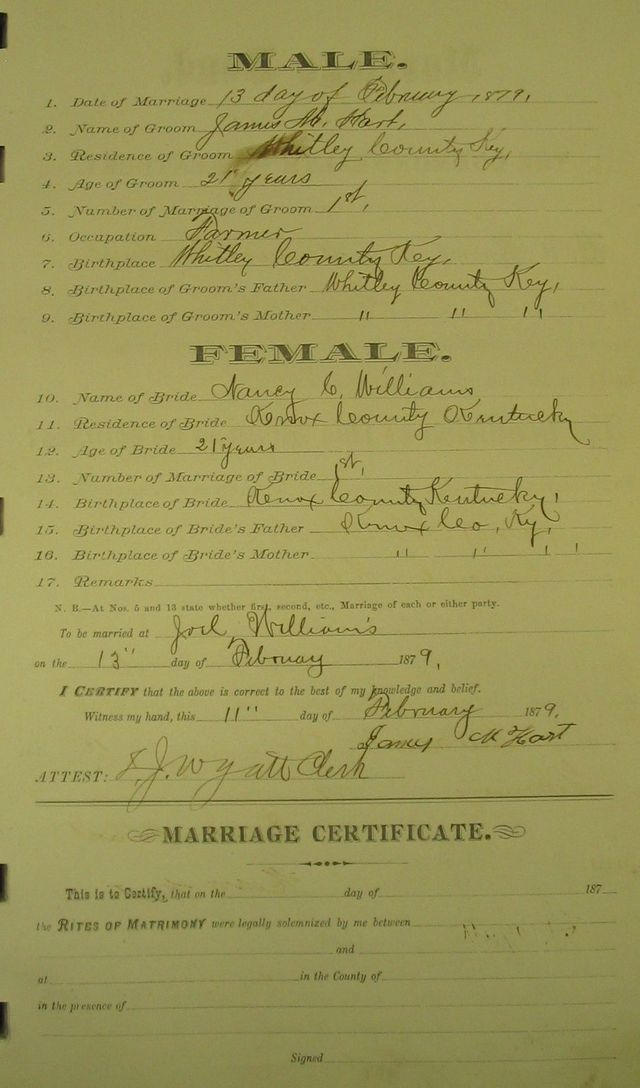 MALE.
1. Date of Marriage 13 day of February, 1879,
2. Name of Groom James M. Hart,
3. Residence of Groom Whitley County Ky,
4. Age of Groom 21 years
5. Number of Marriage of Groom 1st,
6. Occupation Farmer
7. Birthplace Whitley County Key,
8. Birthplace of Groom's Father Whitley County Key,
9. Birthplace of Groom's Mother " " "
FEMALE.
10. Name of Bride Nancy C. Williams
11. Residence of Bride Knox County Kentucky
12. Age of Bride 21 years
13. Number of Marriage of Bride 1st,
14. Birthplace of Bride Knox County Kentucky,
15. Birthplace of Bride's Father Knox Co, Ky,
16. Birthplace of Bride's Mother " " " "
17. Remarks
N. B.—At Nos. 5 and 13 state whether first, second, etc., Marriage of each or either party.
To be married at Joel, William's
on the 13" day of Februay 1879,
I CERTIFY that the above is correct to the best of my knowledge and belief.
Witness my hand, this 11" day of February 1879.
James M Hart
ATTEST: J. Wyatt Clerk
MARRIAGE CERTIFICATE.
This is to Certify, that on the day of 187
the RITES OF MATRIMONY were legally solemnized by me between
and
at in the County of
in the presence of
Signed